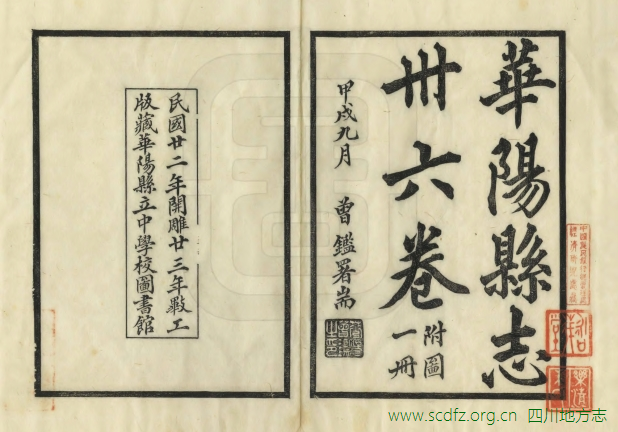 華陽縣志
卅六卷
附圖
一冊
甲戌九月 曾鑑署耑
民國廿二年開雕廿三年工
版藏華陽縣立中學校圖書館
www.scdfz.org.cn 四川地方志